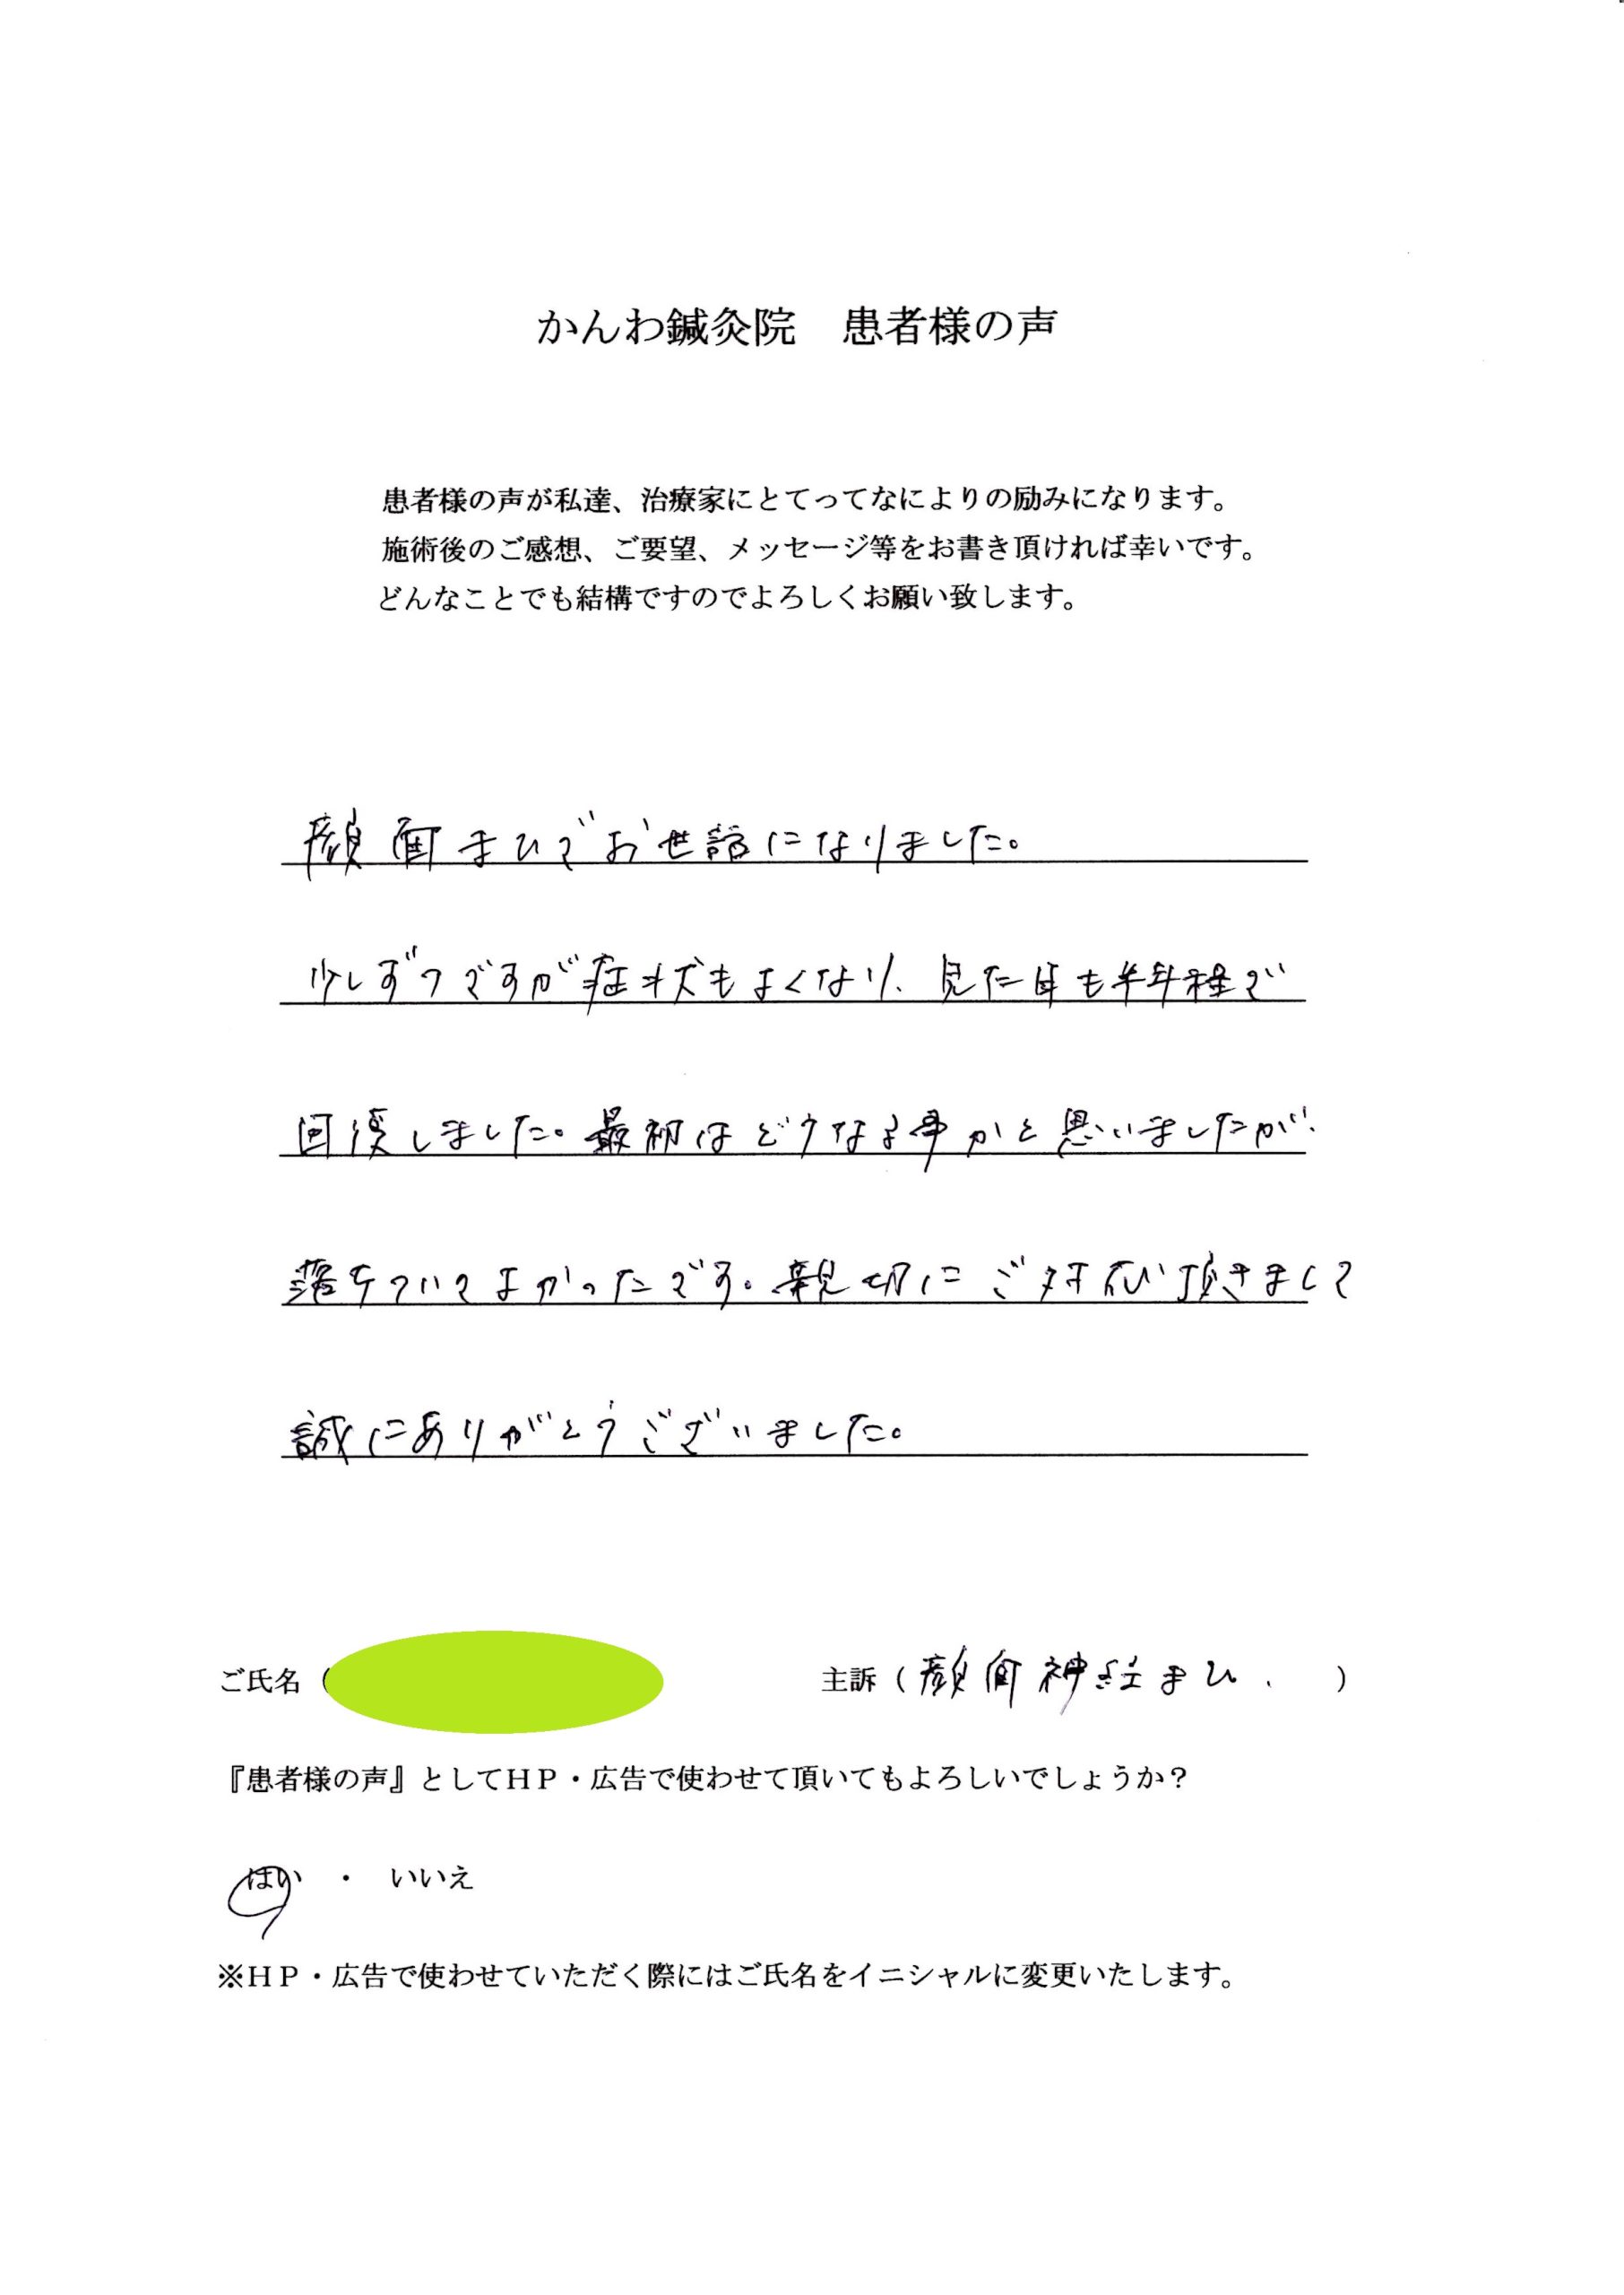 かんわ鍼灸院　患者様の声
患者様の声が私達、治療家にとてってなによりの励みになります。
施術後のご感想、ご要望、メッセージ等をお書き頂ければ幸いです。
どんなことでも結構ですのでよろしくお願い致します。
顔面まひでお世話になりました。
少しずつですが症状もよくなり、見た目も半年程で
回復しました。最初はどうなる事かと思いましたが、
落ちついてよかったです。親切にご対応頂きまして
誠にありがとうございました。
ご氏名（　主訴（顔面神経まひ、）
『患者様の声』としてＨＰ・広告で使わせて頂いてもよろしいでしょうか？
はい　・　いいえ
※ＨＰ・広告で使わせていただく際にはご氏名をイニシャルに変更いたします。